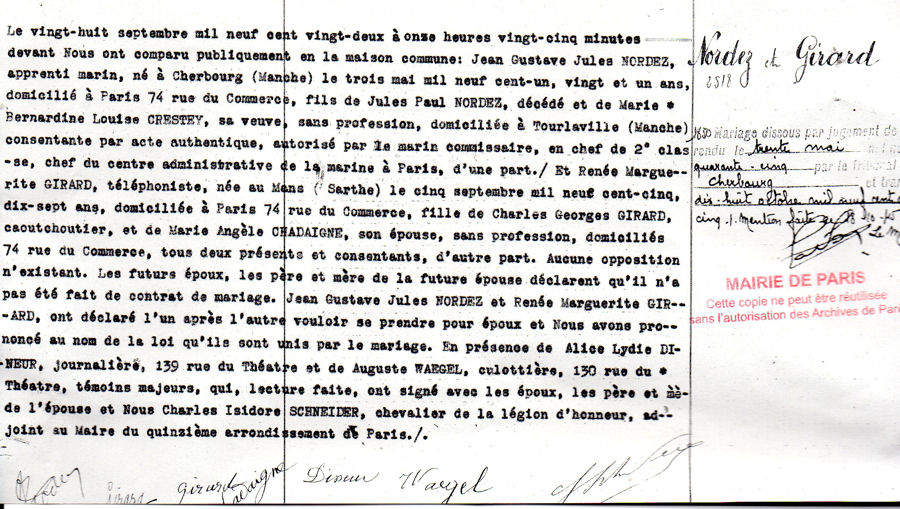 Le vingt-huit septembre mil neuf cent vingt-deux à onze heures vingt-cinq minutes
devant Nous ont comparu publiquement en la maison commune: Jean Gustave Jules NORDEZ,
apprenti marin, né à Cherbourg (Manche) le trois mai mil neuf cent-un, vingt et un ans,
domicilié à Paris 74 rue du Commerce, fils de Jules Paul NORDEZ, décédé et de Marie *
Bernardine Louise CRESTEY, sa veuve, sans profession, domiciliée à Tourlaville (Manche)
consentante par acte authentique, autorisé par le marin commissaire, en chef de 2° clas
-se, chef du centre administratif de la marine à Paris, d'une part./ Et Renée Margue--
rite GIRARD, téléphoniste, née au Mans (Sarthe) le cinq septembre mil neuf cent-cinq,
dix-sept ans, domiciliée à Paris 74 rue du Commerce, fille de Charles Georges GIRARD,
caoutchoutier, et de Marie Angèle CHADAIGNE, son épouse, sans profession, domiciliés
74 rue du Commerce, tous deux présents et consentants, d'autre part. Aucune opposition
n'existant. Les futurs époux, les père et mère de la future épouse déclarent qu'il n'a
pas été fait de contrat de mariage. Jean Gustave Jules NORDEZ et Renée Marguerite GIR--
-ARD, ont déclaré l'un après l'autre vouloir se prendre pour époux et Nous avons pro--
noncé au nom de la loi qu'ils sont unis par le mariage. En présence de Alice Lydie DI-
-NEUR, journalière, 139 rue du Théatre et de Auguste WAEGEL, culottière, 130 rue du *
Théatre, témoins majeurs, qui, lecture faite, ont signé avec les époux, les père et mè-
de l'épouse et Nous Charles Isidore SCHNEIDER, chevalier de la légion d'honneur, ad--
joint au Maire du quinzième arrondissement de Paris./.
Girard
Girard
Dineur
Waegel
Nordez et Girard
2518
Mariage dissous par jugement de
rendu le trente mai
quarante-cinq par le tribunal
Cherbourg et tran
dix-huit octobre mil neuf cent
cinq ./. Mention faite le 18-10-45
Le M
MAIRIE DE PARIS
Cette copie ne peut être réutilisée
sans l'autorisation des Archives de Pari